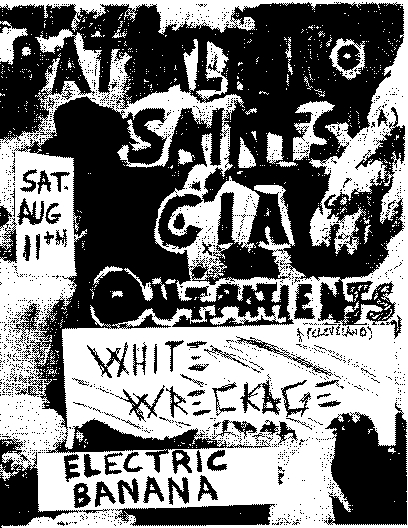 BATTALION
SAINTS
SAT.
AUG
11TH
CIA
OUTPATIENTS
(CLEVELAND)
WHITE
WRECKAGE
ELECTRIC
BANANA